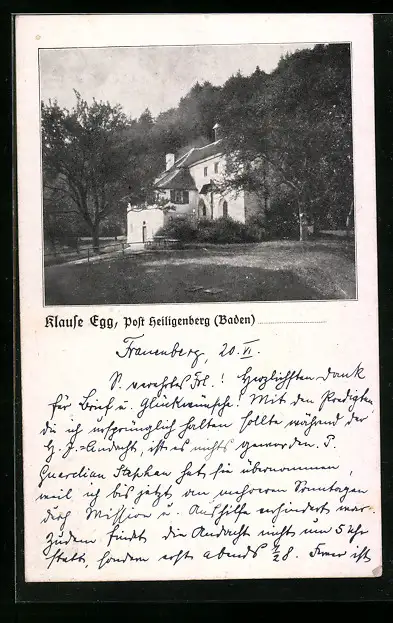 Klause Egg, Post Heiligenberg (Baden)
Frauenberg, 20. VI.
S. verehrtes Frl.! Herzlichsten Dank
für Brief u. Glückwünsche! Mit den Predigten
die ich ursprünglich halten sollte während der
H. J.-Andacht, ist es nichts geworden. P.
Guardian Stephan hat sie übernommen,
weil ich bis jetzt an mehreren Sonntagen
durch Mission u. Aushilfe verhindert war.
Zudem findet die Andacht nicht um 5 Uhr
statt, sondern erst abends ½8. Zwar ist